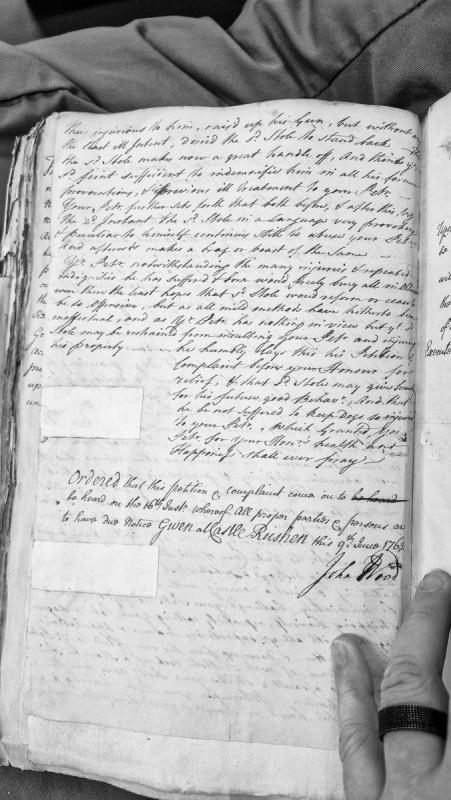 thus injurious to him, rais'd up his Gun, but without
the least ill Intent, desird the sd. Stole to stand back
the sd. Stole make now a great handle of, And thinks yt.
sd. point sufficient to indemnifie him in all his former
Provocations, & previous ill treatment to your Petr.
Your Petr. further sets forth that both before, & after this, viz
the 2d. Instant the sd. Stole in a Language very provoking
& peculiar to himself continues still to abuse your Petr.
and afterwds. makes a brag or boast of the same
Yr. Petr. notwithstanding the many injuries & repeated
indignities he has sufferd & born would freely bury all in
were there the least hopes that sd. Stole would reform or cease to
be so offensive, but as all mild methods have hitherto been
ineffectual, and as yr. Petr. has nothing in view but yt. sd.
Stole may be restraind from insulting your Petr. and injuring
his property
he humbly lays this his Petition &
Complaint before your Honour for
relief, & that sd. Stole may give
for his future good Behavr., And that
he be not suffered to keep Dogs so injurious
to your Petr. Which Granted Your
Petr. for your Honrs. health and
Happiness shall ever pray
Ordered that this petition & complaint come on to be heard
be heard on the 16th Inst. whereof All proper parties & persons are
to have due Notice Given at Castle Rushen this 9th. June 1762
John Wood